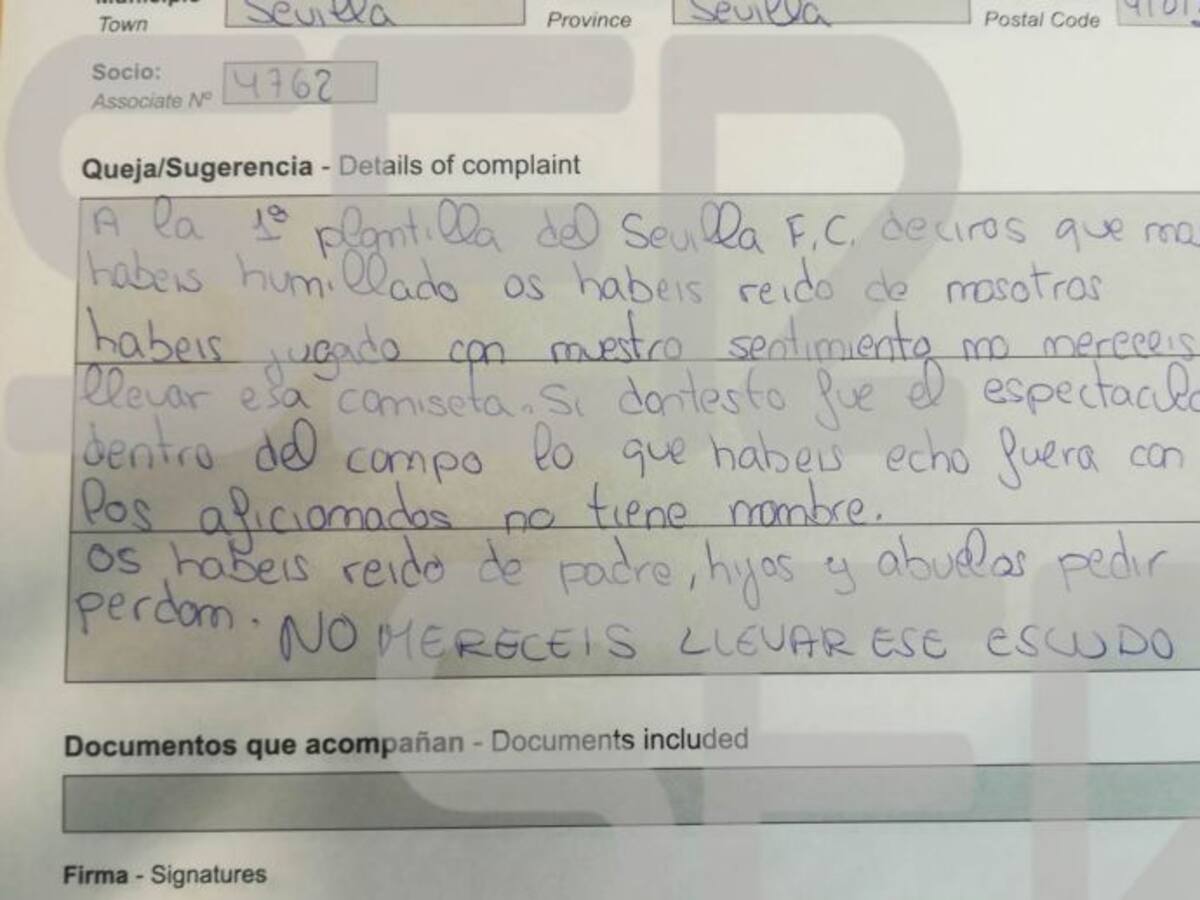 Town Sevilla Province Sevilla Postal Code
Socio:
Associate Nº 4762
Queja/Sugerencia - Details of complaint
A la 1ª plantilla del Sevilla F.C. deciros que
habeis humillado os habeis reido de nosotros
habeis jugado con nuestro sentimiento no mereceis
llevar esa camiseta. Si dantesto fue el espectaculo
dentro del campo lo que habeis echo fuera con
los aficionados no tiene nombre.
os habeis reido de padre, hijos y abuelos pedir
perdon. NO MERECEIS LLEVAR ESE ESCUDO
Documentos que acompañan - Documents included
Firma - Signatures
SER
SER